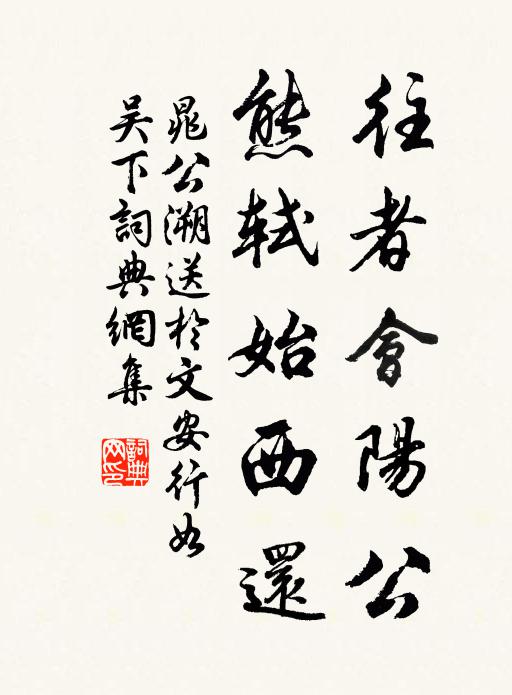 往者會陽公
熊軾始西還
晁公溯送於文安行如
吳下詞典網集
詞典网印